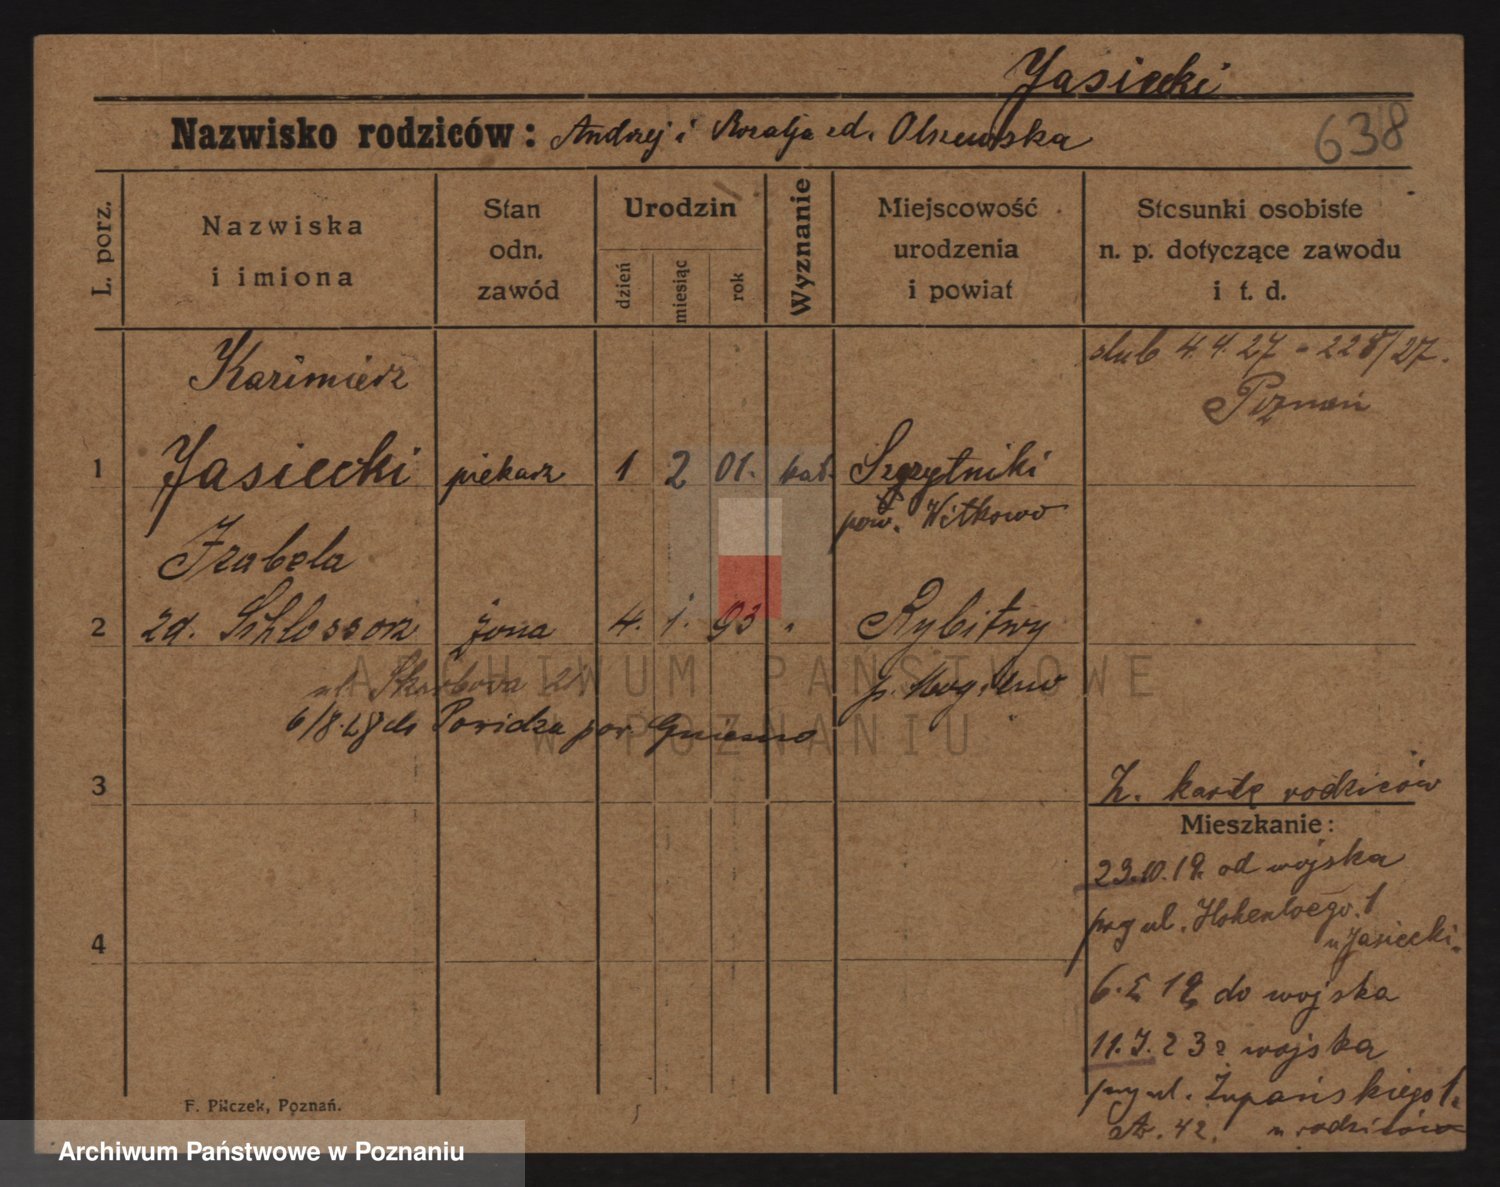 Jasiecki
Nazwisko rodziców: Andrzej i Rozalja zd. Olszewska
638
L. porz.
Nazwiska
i imiona
Stan
odn.
zawód
Urodzin
dzień
miesiąc
rok
Wyznanie
Miejscowość
urodzenia
i powiat
Stosunki osobiste
n. p. dotyczące zawodu
i t. d.
ślub 4.4.27 - 228/27.
Poznań
Kazimierz
1 Jasiecki piekarz 1 2 01. kat. Szczytniki
pow. Witkowo
Izabela
2 zd. Schlosser żona 4. 1. 93 " Rybitwy
ul. Skarbowa 21 p. Mogilno
6/8.28 do Powidza pow. Gniezno
3
Z. kartę rodziców
Mieszkanie:
23.10.19. od wojska
przy ul. Hohenloego. 1
u Jasiecki.
4
6. 19 do wojska
11.I.23 z wojska
przy ul. Żupańskiego 1.
42. u rodziców
F. Pilczek, Poznań.
ARCHIWUM PAŃSTWOWE
W POZNANIU
Archiwum Państwowe w Poznaniu